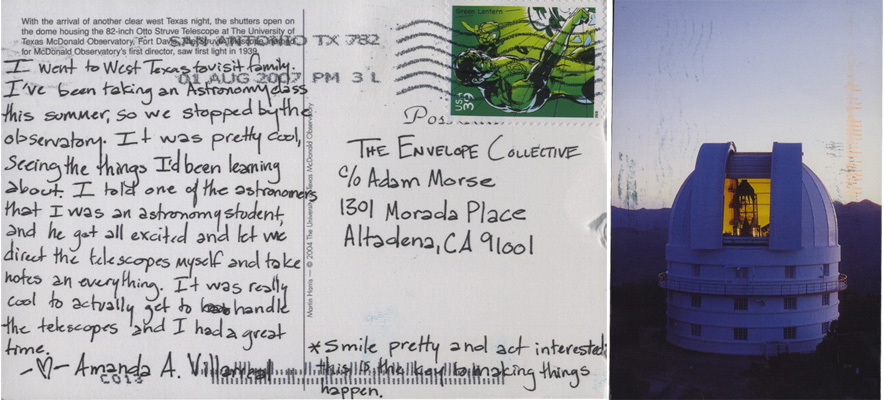 With the arrival of another clear west Texas night, the shutters open on
the dome housing the 82-inch Otto Struve Telescope at The University of
Texas McDonald Observatory, Fort Davis.
for McDonald Observatory's first director, saw first light in 1939.
SAN ANTONIO TX 782
01 AUG 2007 PM 3 L
I went to West Texas to visit family.
I've been taking an Astronomy class
this summer, so we stopped by the
observatory. It was pretty cool,
seeing the things I'd been learning
about. I told one of the astronomers
that I was an astronomy student,
and he got all excited and let me
direct the telescopes myself and take
notes an everything. It was really
cool to actually get to handle
the telescopes and I had a great
time.
-♡- Amanda A. Villarreal
CO13
Martin Harris — © 2004 The University of Texas McDonald Observatory
Green Lantern
USA
39
Pos
THE ENVELOPE COLLECTIVE
c/o Adam Morse
1301 Morada Place
Altadena, CA 91001
*Smile pretty and act interested;
this is the key to making things
happen.